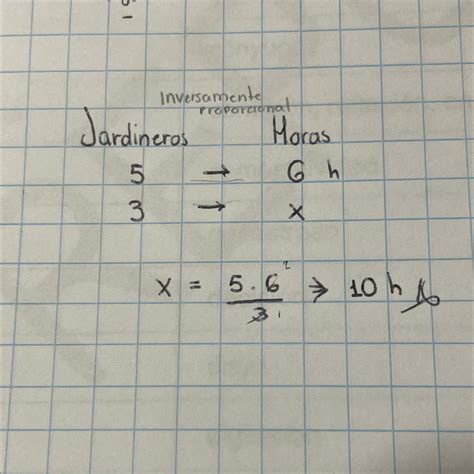 Inversamente
proporcional
Jardineros Horas
5 → 6 h
3 → x
x = 5 · 6 2 / 3 1 ⇒ 10 h